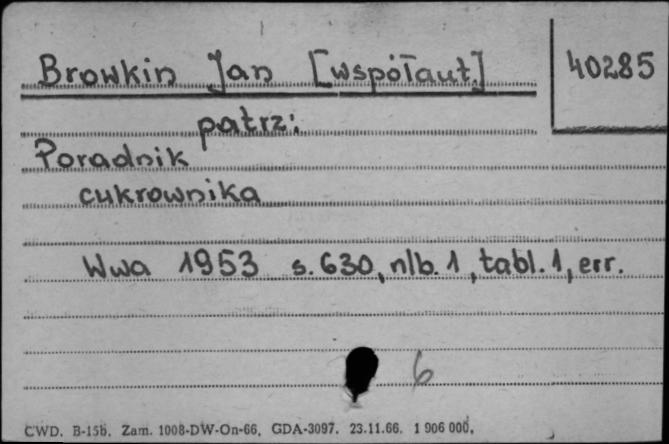 Browkin Jan [współaut.]
40285
patrz:
Poradnik
cukrownika
Wwa 1953 s. 630, nlb. 1, tabl. 1, err.
6
CWD. B-15b. Zam. 1008-DW-On-66. GDA-3097. 23.11.66. 1 906 000.